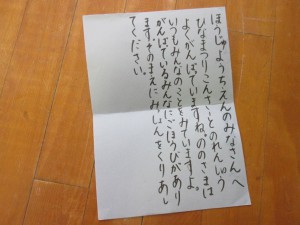 ほうじゅようちえんのみなさんへ
ひなまつりこんさーとのれんしゅう
よくがんばっていますね。ののさまは
いつもみんなのことをみていますよ。
がんばっているみんなにごほうびがあり
ます。そのまえにみしんをくりあし
てください。